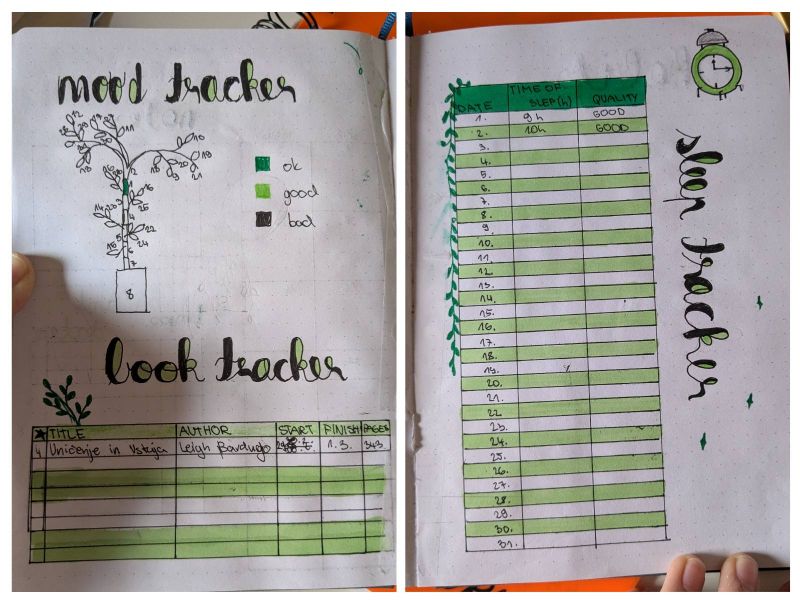 mood tracker
ok
good
bad
8
book tracker
★ TITLE AUTHOR START FINISH PAGES
4 Uničenje in Vstaja Leigh Bardugo 1. 3. 343
sleep tracker
DATE TIME OF SLEEP(h) QUALITY
1. 9h GOOD
2. 10h GOOD
3.
4.
5.
6.
7.
8.
9.
10.
11.
12.
13.
14.
15.
16.
17.
18.
19.
20.
21.
22
23.
24.
25.
26.
27.
28.
29.
30.
31.